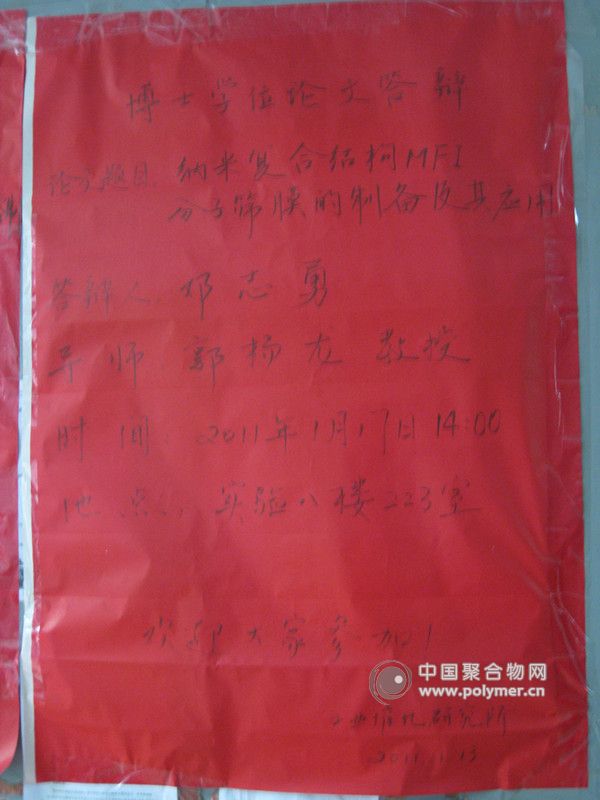 博士学位论文答辩
论文题目：纳米复合结构MFI
分子筛膜的制备及其应用
答辩人：邓志勇
导师：郭杨龙 教授
时间：2011年1月17日 14:00
地点：实验八楼223室
欢迎大家参加！
中国聚合物网
www.polymer.cn
工业催化研究所
2011.1.13